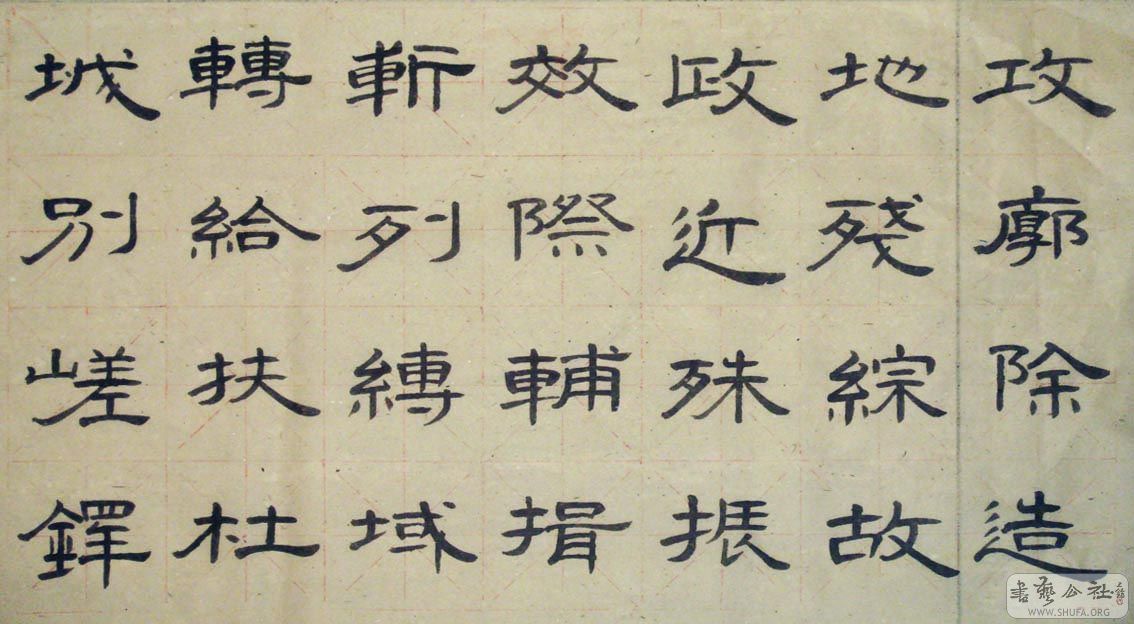 攻廓除造
地殘綜故
政近殊振
效際輔揖
斬列縛域
轉給扶杜
城別嵯鐸
書藝公社
WWW.SHUFA.ORG